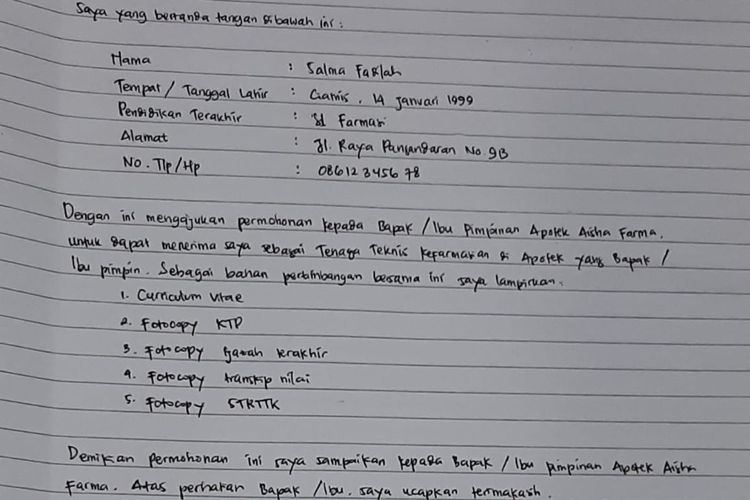 Saya yang bertanda tangan dibawah ini :
Nama : Salma Fadlah
Tempat / Tanggal Lahir : Ciamis, 14 Januari 1999
Pendidikan Terakhir : S1 Farmasi
Alamat : Jl. Raya Pangandaran No. 9B
No. Tlp / Hp : 086123456 78
Dengan ini mengajukan permohonan kepada Bapak / Ibu Pimpinan Apotek Aisha Farma,
untuk dapat menerima saya sebagai Tenaga Teknis Kefarmasian di Apotek yang Bapak /
Ibu pimpin. Sebagai bahan pertimbangan bersama ini saya lampirkan.
1. Curriculum Vitae
2. Fotocopy KTP
3. Fotocopy Ijazah terakhir
4. Fotocopy transkip nilai
5. Fotocopy STRTTK
Demikian permohonan ini saya sampaikan kepada Bapak / Ibu pimpinan Apotek Aisha
Farma. Atas perhatian Bapak / Ibu. saya ucapkan terimakasih.